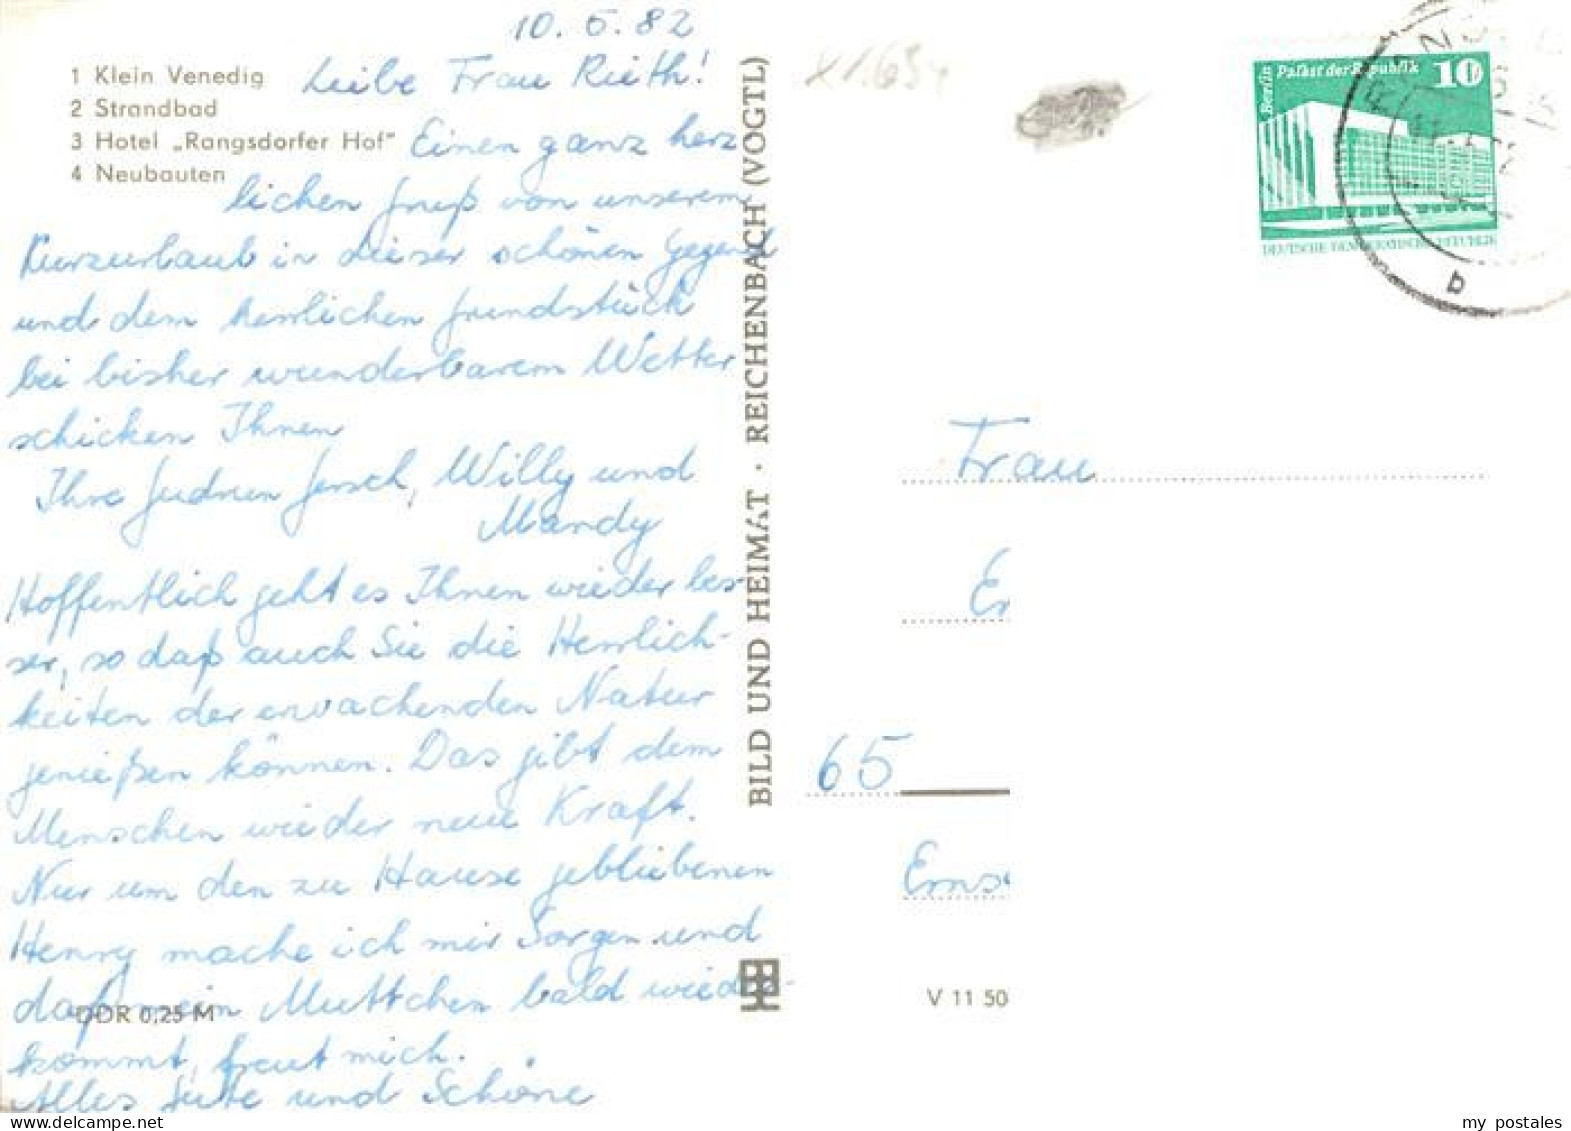 10. 5. 82
1 Klein Venedig
Liebe Frau Rieth!
2 Strandbad
3 Hotel „Rangsdorfer Hof"
Einen ganz herz
4 Neubauten
lichen Gruß von unserem
Kurzurlaub in dieser schönen Gegend
und dem herrlichen Grundstück
bei bisher wunderbarem Wetter
schicken Ihnen
Ihre Gudrun Jersch, Willy und
Mandy
Hoffentlich geht es Ihnen wieder bes-
ser, so daß auch Sie die Herrlich-
keiten der erwachenden Natur
genießen können. Das gibt dem
Menschen wieder neue Kraft.
Nur um den zu Hause gebliebenen
Henry mache ich mir Sorgen und
daß mein Muttchen bald wieder
kommt, freut mich.
Alles Gute und Schöne
DDR 0,25 M
BILD UND HEIMAT · REICHENBACH (VOGTL)
V 11 50
Berlin
Palast der Republik 10
DEUTSCHE DEMOKRATISCHE REPUBLIK
b
Frau
Er
65
Erns
my_postales.com
my_postales